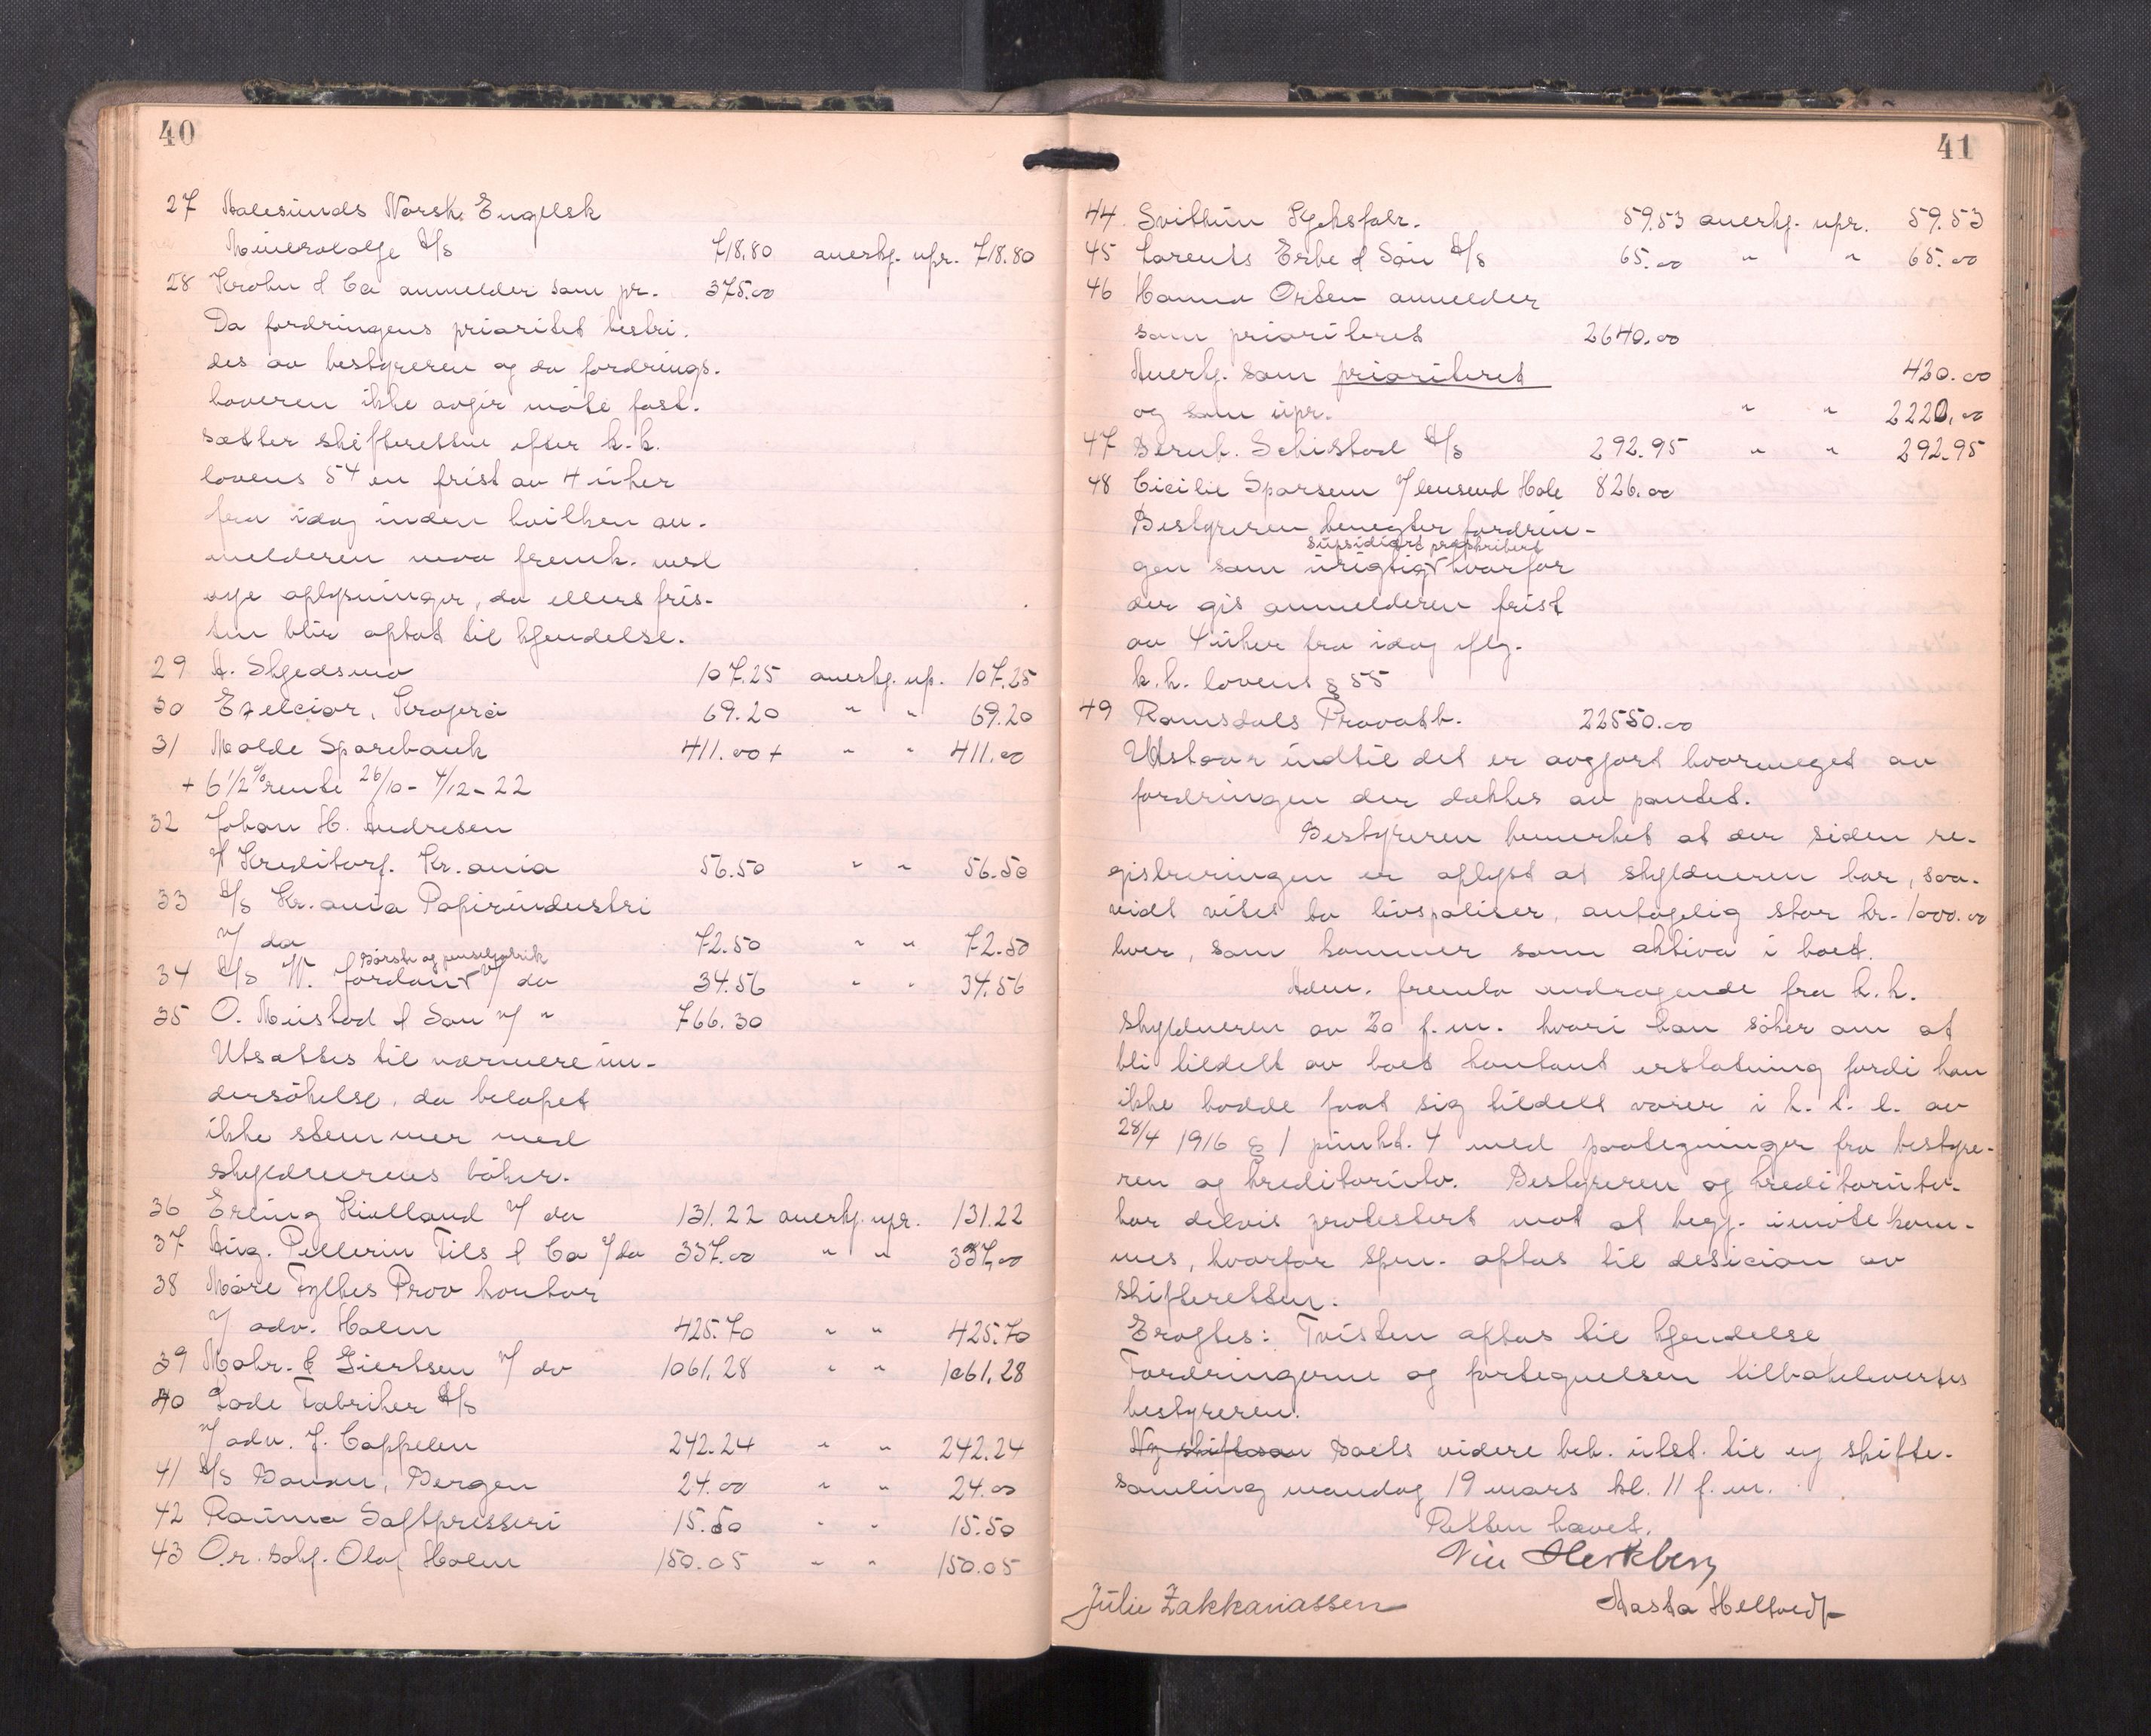 40
27 Aalesunds Norsk Engelsk
Mineralolje A/S 718.80 anerkj. upr. 718.80
28 Krohn & Co anmelder som pr. 375.00
Da fordringens prioritet bestri-
des av bestyreren og da fordrings-
haveren ikke avgir møte fast-
sætter skifteretten efter k.k.
lovens 54 en frist av 4 uker
fra idag inden hvilken an-
melderen maa fremk. med
nye oplysninger, da ellers tvis-
ten blir optat til kjendelse.
29 A. Skjedsmo 107.25 anerkj. up. 107.25
30 Exelcior, Kragerø 69.20 " " 69.20
31 Molde Sparebank 411.00 + " " 411.00
+ 6 1/2 % rente 26/10 - 4/12 - 22
32 Johan H. Andresen
v/ Kreditorf. Kr.ania 56.50 " " 56.50
33 A/S Kr.ania Papirindustri
v/ do 72.50 " " 72.50
Børste og penselfabrik
34 A/S W. Jordan v/ do 34.56 " " 34.56
35 O. Mustad & Søn v/ " 766.30
Utsattes til nærmere un-
dersøkelse, da beløpet
ikke stemmer med
skyldnerens bøker.
36 Erling Kielland v/ do 131.22 anerkj. upr. 131.22
37 Aug. Pellerin Fils & Co v/ do 337.00 " " 337.00
38 Møre Fylkes Prov kontor
v/ adv. Holm 425.70 " " 425.70
39 Mohr & Giertsen v/ do 1061.28 " " 1061.28
40 Lade Fabriker A/S
v/ adv. J. Cappelen 242.24 " " 242.24
41 A/S Bergen 24.00 " " 24.00
42 Rauma Saftpresseri 15.50 " " 15.50
43 O.r.sakf. Olaf Holm 150.05 " " 150.05
41
44 Svithun Skjeksfabr. 59.53 anerkj. upr. 59.53
45 Lorents Erbe & Søn A/S 65.00 " " 65.00
46 Hanna Orten anmelder
som prioriteret 2640.00
Anerkj. som prioriteret 420.00
og som upr. " " 2220.00
47 Bernh. Schistad A/S 292.95 " " 292.95
48 Cicilie Sparsem v/ lensmd Hole 826.00
Bestyreren benegter fordrin-
subsidiært præskribert
gen som urigtig hvorfor
der gis anmelderen frist
av 4 uker fra idag iflg.
k.k. lovens § 55
49 Romsdals Privatb. 22550.00
Utstaar indtil det er avgjort hvormeget av
fordringen der dækkes av pantet.
Bestyreren bemerket at der siden re-
gistreringen er oplyst at skyldneren har, saa-
vidt vites to livspoliser, antagelig stor kr. 1000.00
hver, som kommer som aktiva i boet.
Adm. fremla andragende fra k.k.
skyldneren av 20 f.m. hvori han søker om at
bli tildelt av boet kontant erstatning fordi han
ikke hadde faat sig tildelt varer i h. t. l. av
28/4 1916 § 1 punkt. 4 med paategninger fra bestyre-
ren og kreditorutv. Bestyreren og kreditorutv.
har delvis protestert mot at begj. imøtekom-
mes, hvorfor spm. optas til desicion av
skifteretten.
Eragtes: Tvisten optas til kjendelse
Fordringerne og fortegnelsen tilbakelevertes
bestyreren.
Ny skiftesam Boets videre beh. utst. til ny skifte-
samling mandag 19 mars kl. 11 f.m.
Retten hævet.
Julie Zakkariassen Aasta Helltvedt